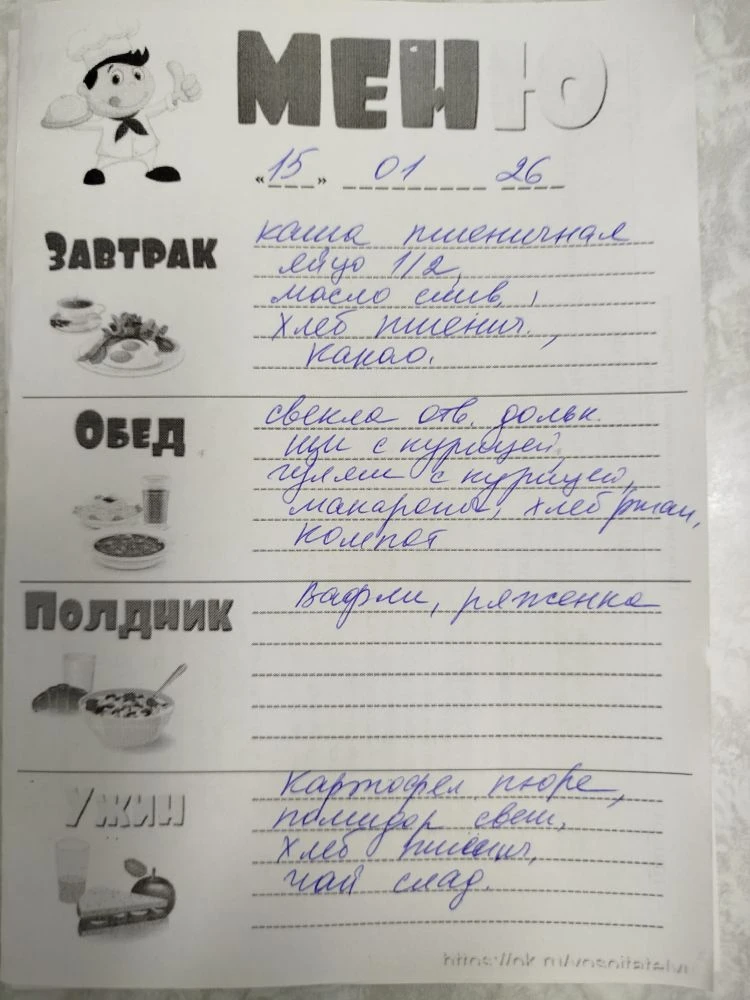 МЕНЮ
«15» 01 26
ЗАВТРАК
каша пшеничная
яйцо 1/2,
масло слив.,
хлеб пшенич.,
какао.
ОБЕД
свекла отв. дольк.
щи с курицей,
гуляш с курицей,
макароны, хлеб ржан,
компот
ПОЛДНИК
Вафли, ряженка
УЖИН
Картофел пюре,
помидор свеж,
хлеб пшенич,
чай слад.